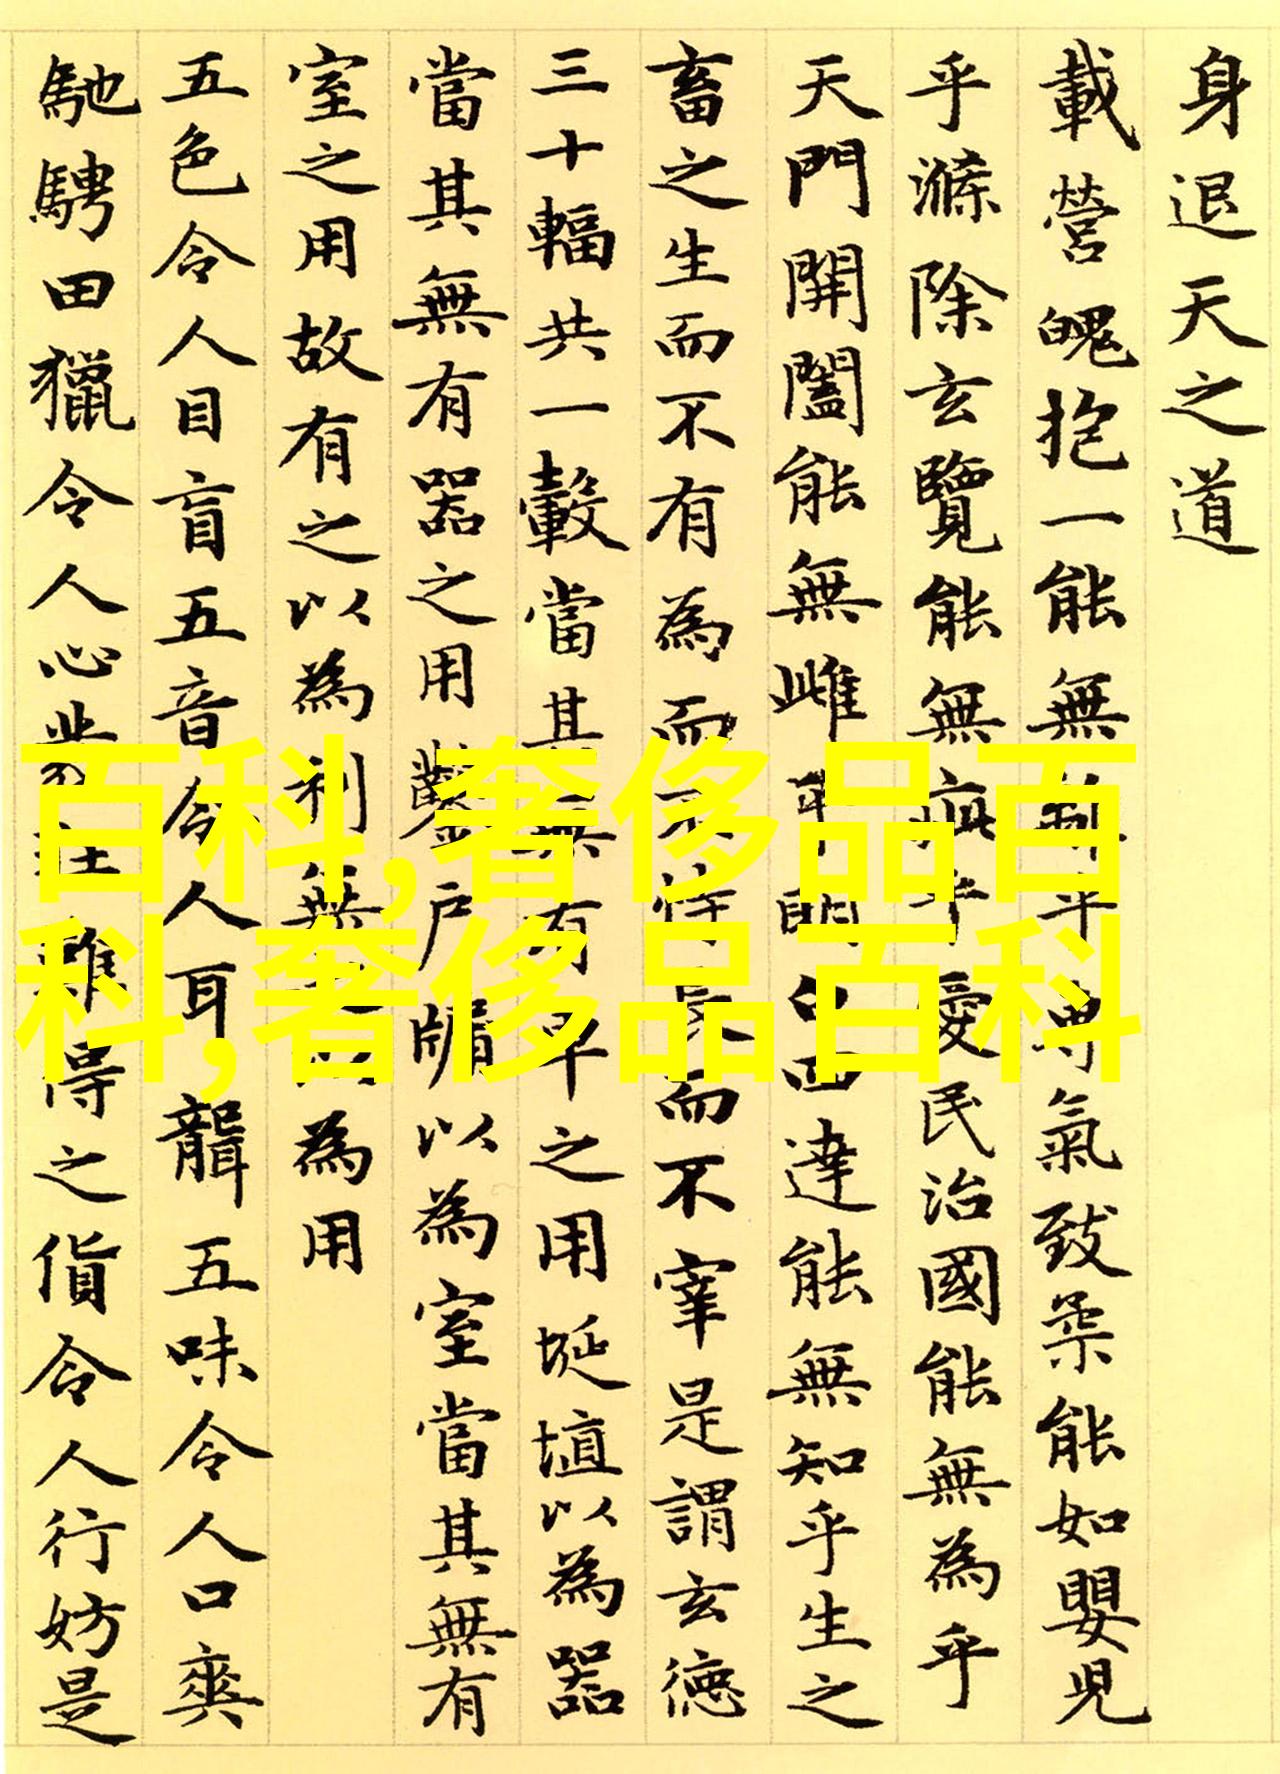 身退天之道
載營魄抱一能無離乎專氣致柔能如嬰兒
乎滌除玄覽能無疵乎愛民治國能無為乎
天門開闔能無雌乎明白四達能無知乎生之
畜之生而不有為而不恃長而不宰是謂玄德
三十輻共一轂當其無有車之用埏埴以為器
當其無有器之用鑿戶牖以為室當其無有
室之用故有之以為利無之以為用
五色令人目盲五音令人耳聾五味令人口爽
馳騁田獵令人心發狂難得之貨令人行妨是
百科,奢侈品百
科,奢侈品百科